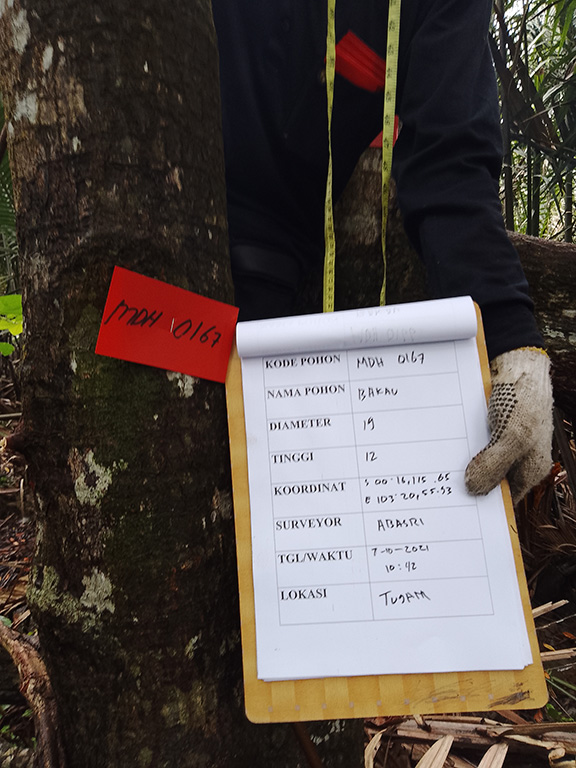 MDH 0167
KODE POHON MDH 0167
NAMA POHON BAKAU
DIAMETER 19
TINGGI 12
KOORDINAT S 00°16,115.65
E 103°20,55.93
SURVEYOR ABASRI
TGL/WAKTU 7-10-2021
10:42
LOKASI